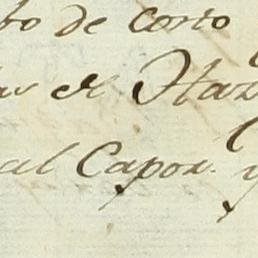 bo de corto
el Haz
al Capor. y